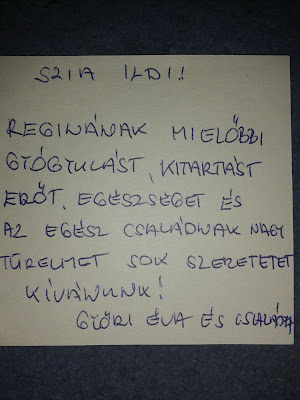 SZIA ILDI!
REGINÁNAK MIELŐBBI
GYÓGYULÁST, KITARTÁST
ERŐT, EGÉSZSÉGET ÉS
AZ EGÉSZ CSALÁDNAK NAGY
TÜRELMET SOK SZERETETET
KÍVÁNUNK!
GYŐRI ÉVA ÉS CSALÁDJA